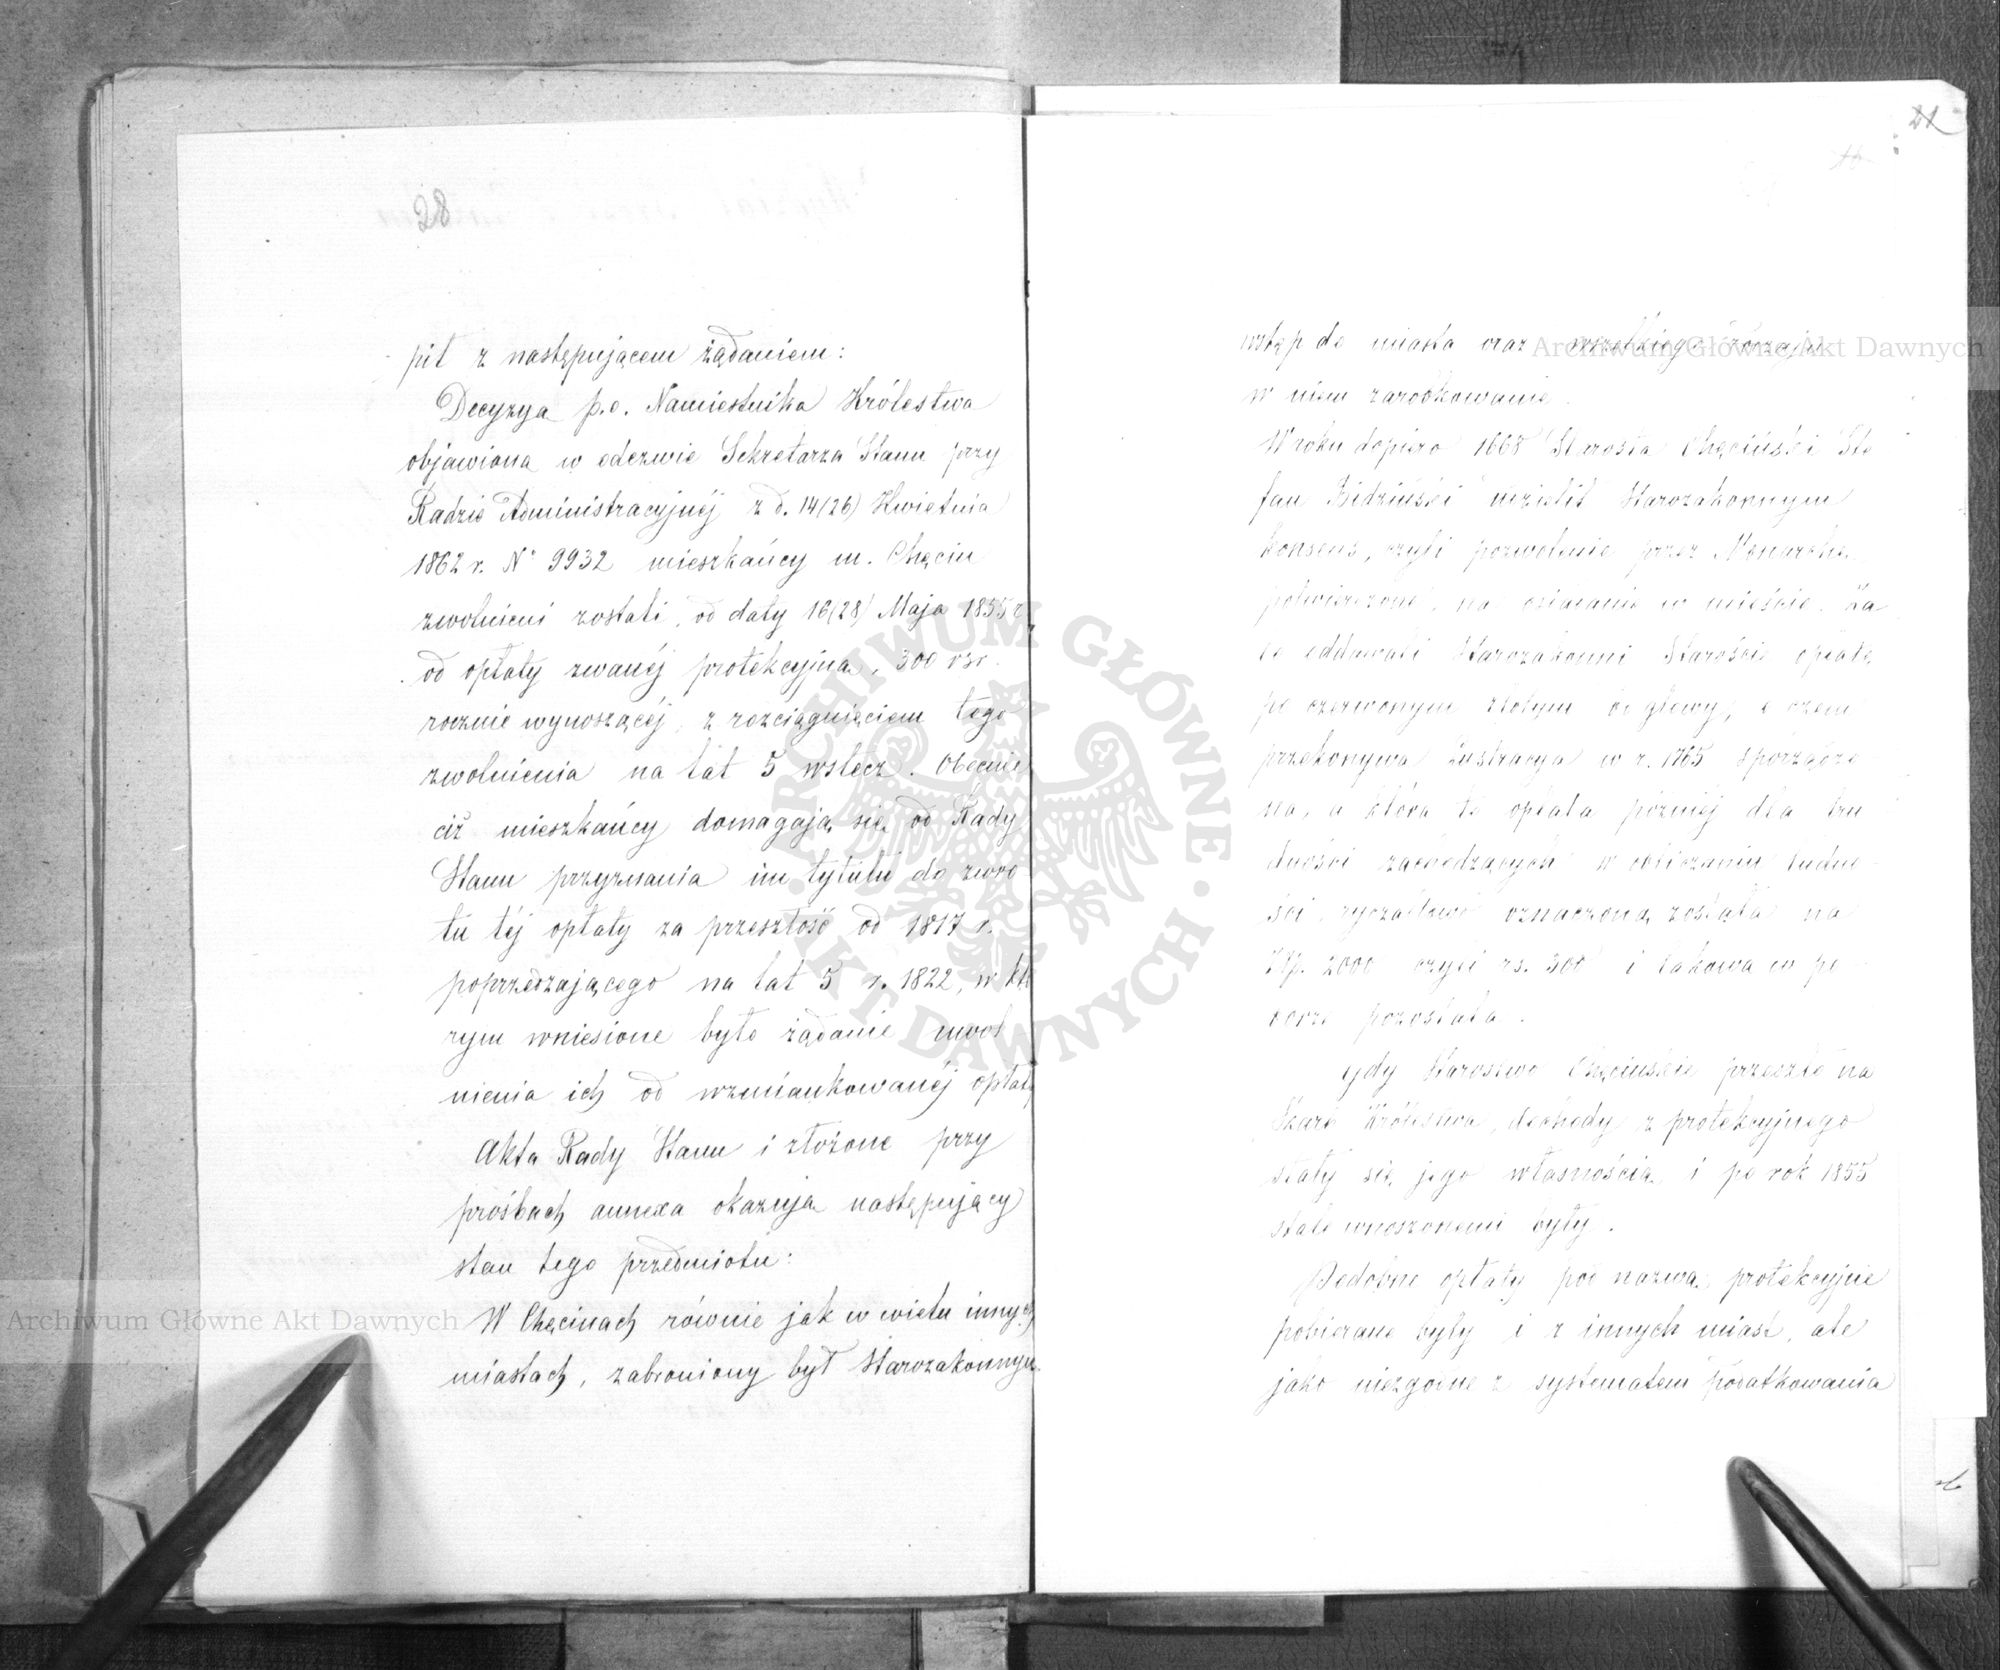 28
pił z następującem żądaniem:
Decyzya p.o. Namiestnika Królestwa
objawiona w odezwie Sekretarza Stanu przy
Radzie Administracyjnéj z d. 14(26) Kwietnia
1862 r. N° 9932 mieszkańcy m. Chęcin
zwolnieni zostali, od daty 16(28) Maja 1855 r.
od opłaty zwanéj protekcyjna, 300 rsr.
rocznie wynoszącéj, z rozciągnięciem tego
zwolnienia na lat 5 wstecz. Obecnie
ciż mieszkańcy domagają się od Rady
Stanu przyznania im tytułu do zwro
tu téj opłaty za przeszłość od 1817 r.
poprzedzającego na lat 5 r. 1822, w któ
rym wniesione było żądanie uwol
nienia ich od wzmiankowanéj opłaty
Akta Rady Stanu i złożone przy
prośbach annexa okazują następujący
stan tego przedmiotu:
W Chęcinach równie jak w wielu innych
miastach, zabroniony był Starozakonnym
21
wstęp do miasta oraz wszelkiego rodzaju
w niem zarobkowanie.
W roku dopiero 1668 Starosta Chęciński Ste
fan Bidziński udzielił Starozakonnym
konsens, czyli pozwolenie przez Monarchę
potwierdzone, na osiadanie w mieście. Za
co oddawali Starozakonni Staroście opłatę
po czerwonym złotym od głowy, o czem
przekonywa Lustracya w r. 1765 sporządzo
na, a która to opłata później dla tru
dności zachodzących w obliczaniu ludno-
ści, ryczałtowo oznaczoną została na
Złp. 2000 czyli rs. 300 i takowa w po-
borze pozostała.
Gdy Starostwo Chęcińskie przeszło na
Skarb Królestwa, dochody z protekcyjnego
stały się jego własnością i po rok 1855
stale wnoszonemi były.
Podobne opłaty pod nazwą protekcyjne
pobierane były i z innych miast, ale
jako niezgodne z systematem podatkowania
Archiwum Główne Akt Dawnych
Archiwum Główne Akt Dawnych
ARCHIWUM GŁÓWNE AKT DAWNYCH